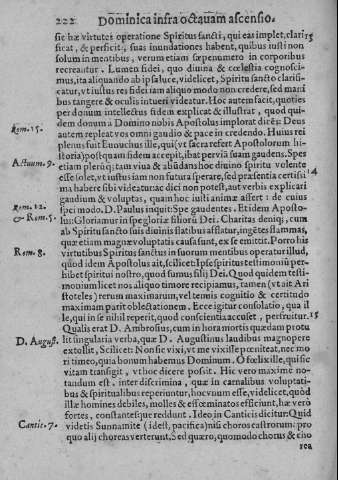 222 Dominica infra octauam ascensio.
sic hæ virtutes operatione Spiritus sancti, qui eas implet, clari-
ficat, & perficit, suas inundationes habent, quibus iusti non
solum in mentibus, verum etiam sæpenumero in corporibus
recreantur. Lumen fidei, quo diuina & ecclesia cognosci-
mus, ita aliquando ab ipsa luce, videlicet, Spiritu sancto clarifi-
catur, vt iustus res fidei iam aliquo modo non credere, sed mani
bus tangere & oculis intueri videatur. Hoc autem facit, quoties
per donum intellectus fidem explicat & illustrat, quod qui-
dem donum a Domino nobis Apostolus imprecat dices: Deus
Rom. 15. autem repleat vos omni gaudio & pace in credendo. Huius rei
plenus fuit Eunuchus ille, qui (vt sacra refert Apostolorum hi-
Actuum. 9. storia) postquam fidem accepit, ibat per viã suam gaudens. Spes
etiam plerũq; tam viua & abũdans hoc diuino spiritu volente
esse solet, vt iustus iam non futura sperare, sed præsentia certissi 14
ma habere sibi videatur: ac dici non potest, aut verbis explicari
gaudium & voluptas, quam hoc iusti animæ affert: de cuius
Rom. 12. spei modo. D. Paulus inquit: Spe gaudentes. Etidem Aposto-
& Rom. 5. lus: Gloriamur in spe gloriæ filiorũ Dei. Charitas deniq;, cum
ab Spiritu sancto suis diuinis flatibus afflatur, ingẽtes flammas,
quæ etiam magnæ voluptatis causa sunt, ex se emittit. Porro his
Rom. 8. virtutibus Spiritus sanctus in suorum mentibus operatur illud,
quod idem Apostolus ait, scilicet: Ipse spiritus testimoniũ per-
hibet spiritui nostro, quod sumus filij Dei. Quod quidem testi-
monium licet nos aliquo timore recipiamus, tamen (vt ait Ari
stoteles) rerum maximarum, vel temuis cognitio & certitudo
maximam parit oblectationem. Ecce igitur consolatio, qua il
le, qui in se nihil reperit, quod conscientia accuset, perfruitur. 15
Qualis erat D. Ambrosius, cum in hora mortis quædam protu
D. August. lit singularia verba, quæ D. Augustinus laudibus magnopere
extollit, Scilicet: Non sic vixi, vt me vixisse pœniteat, nec mo
ri timeo, quia bonum habemus Dominum. O fœlix ille, qui sic
vitam transigit, vt hoc dicere possit. Hic vero maxime no-
tandum est inter discrimina, quæ in carnalibus voluptati-
bus & spiritualibus reperiuntur, hoc vnum esse, videlicet, quòd
illæ homines debiles, molles & effœminatos efficiunt, hæ verò
fortes, constantesque reddunt. Ideo in Canticis dicitur: Quid
Cantic. 7. videtis Sunnamite (idest, pacifica) nisi choros castrorum: pro
quo alij choreas verterunt. Sed quæro, quomodo chorus & cho
rea